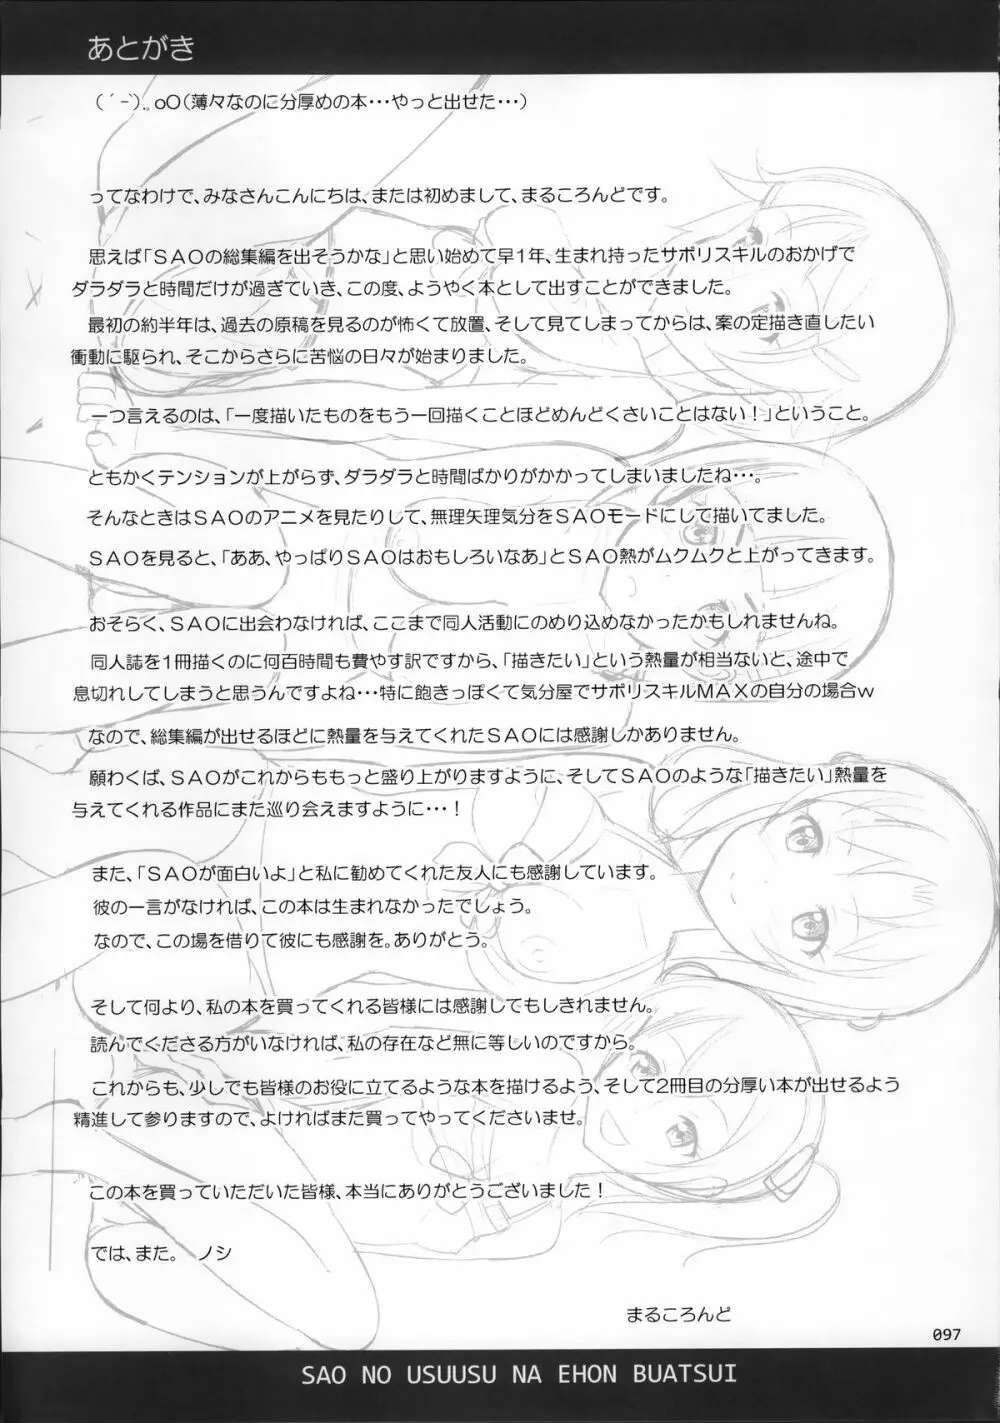 あとがき
(´-`).｡oO(薄々なのに分厚めの本･･･やっと出せた･･･)
ってなわけで、みなさんこんにちは、または初めまして、まるころんどです。
思えば「ＳＡＯの総集編を出そうかな」と思い始めて早１年、生まれ持ったサボリスキルのおかげで
ダラダラと時間だけが過ぎていき、この度、ようやく本として出すことができました。
最初の約半年は、過去の原稿を見るのが怖くて放置、そして見てしまってからは、案の定描き直したい
衝動に駆られ、そこからさらに苦悩の日々が始まりました。
一つ言えるのは、「一度描いたものをもう一回描くことほどめんどくさいことはない！」ということ。
ともかくテンションが上がらず、ダラダラと時間ばかりがかかってしまいましたね･･･。
そんなときはＳＡＯのアニメを見たりして、無理矢理気分をＳＡＯモードにして描いてました。
ＳＡＯを見ると、「ああ、やっぱりＳＡＯはおもしろいなあ」とＳＡＯ熱がムクムクと上がってきます。
おそらく、ＳＡＯに出会わなければ、ここまで同人活動にのめり込めなかったかもしれませんね。
同人誌を１冊描くのに何百時間も費やす訳ですから、「描きたい」という熱量が相当ないと、途中で
息切れしてしまうと思うんですよね･･･特に飽きっぽくて気分屋でサボリスキルＭＡＸの自分の場合ｗ
なので、総集編が出せるほどに熱量を与えてくれたＳＡＯには感謝しかありません。
願わくば、ＳＡＯがこれからももっと盛り上がりますように、そしてＳＡＯのような「描きたい」熱量を
与えてくれる作品にまた巡り会えますように･･･！
また、「ＳＡＯが面白いよ」と私に勧めてくれた友人にも感謝しています。
彼の一言がなければ、この本は生まれなかったでしょう。
なので、この場を借りて彼にも感謝を。ありがとう。
そして何より、私の本を買ってくれる皆様には感謝してもしきれません。
読んでくださる方がいなければ、私の存在など無に等しいのですから。
これからも、少しでも皆様のお役に立てるような本を描けるよう、そして２冊目の分厚い本が出せるよう
精進して参りますので、よければまた買ってやってくださいませ。
この本を買っていただいた皆様、本当にありがとうございました！
では、また。　ノシ
まるころんど
097
SAO NO USUUSU NA EHON BUATSUI